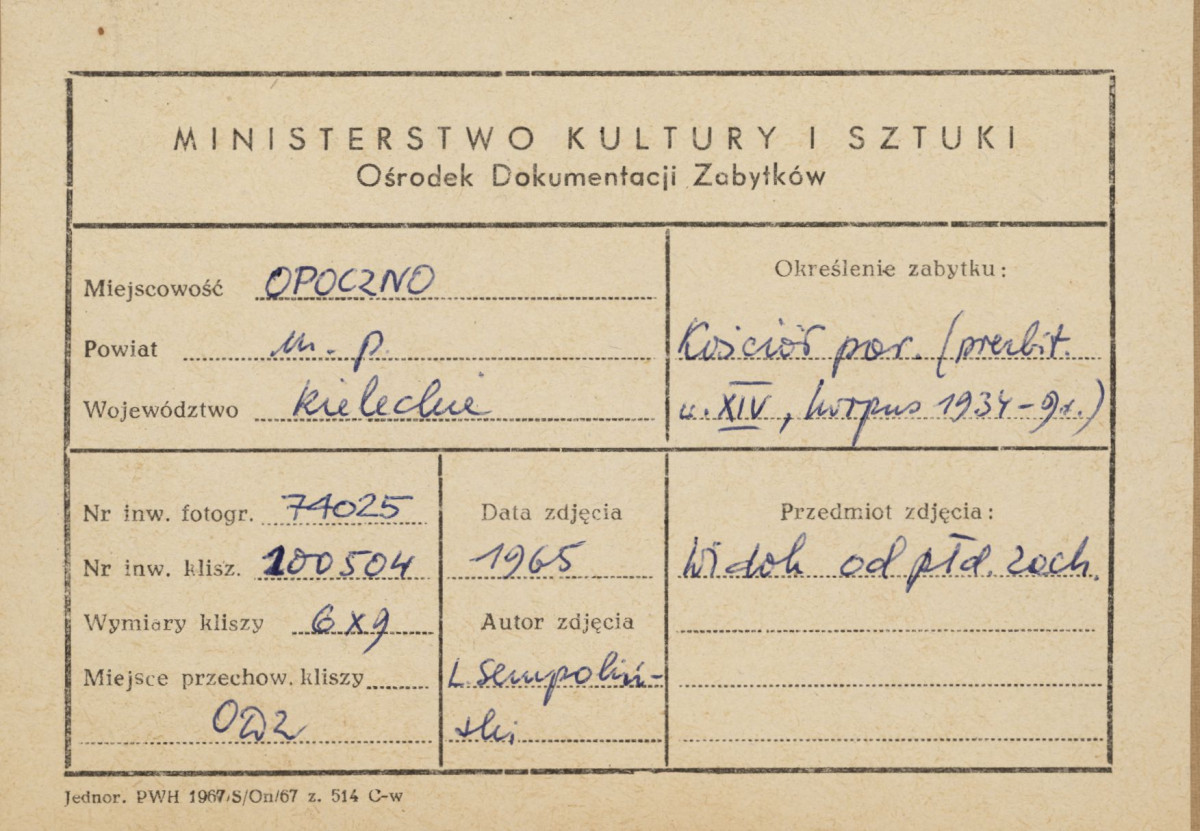 MINISTERSTWO KULTURY I SZTUKI
Ośrodek Dokumentacji Zabytków
Miejscowość OPOCZNO
Powiat m. p.
Województwo kieleckie
Określenie zabytku:
Kościół par. (prezbit.
w. XIV, korpus 1934-9r.)
Nr inw. fotogr. 74025
Nr inw. klisz. 100504
Wymiary kliszy 6x9
Miejsce przechow. kliszy
ODZ
Data zdjęcia
1965
Autor zdjęcia
L. Sempoliń-
ski
Przedmiot zdjęcia:
Widok od płd. zach.
Jednor. PWH 1967/S/On/67 z. 514 C-w